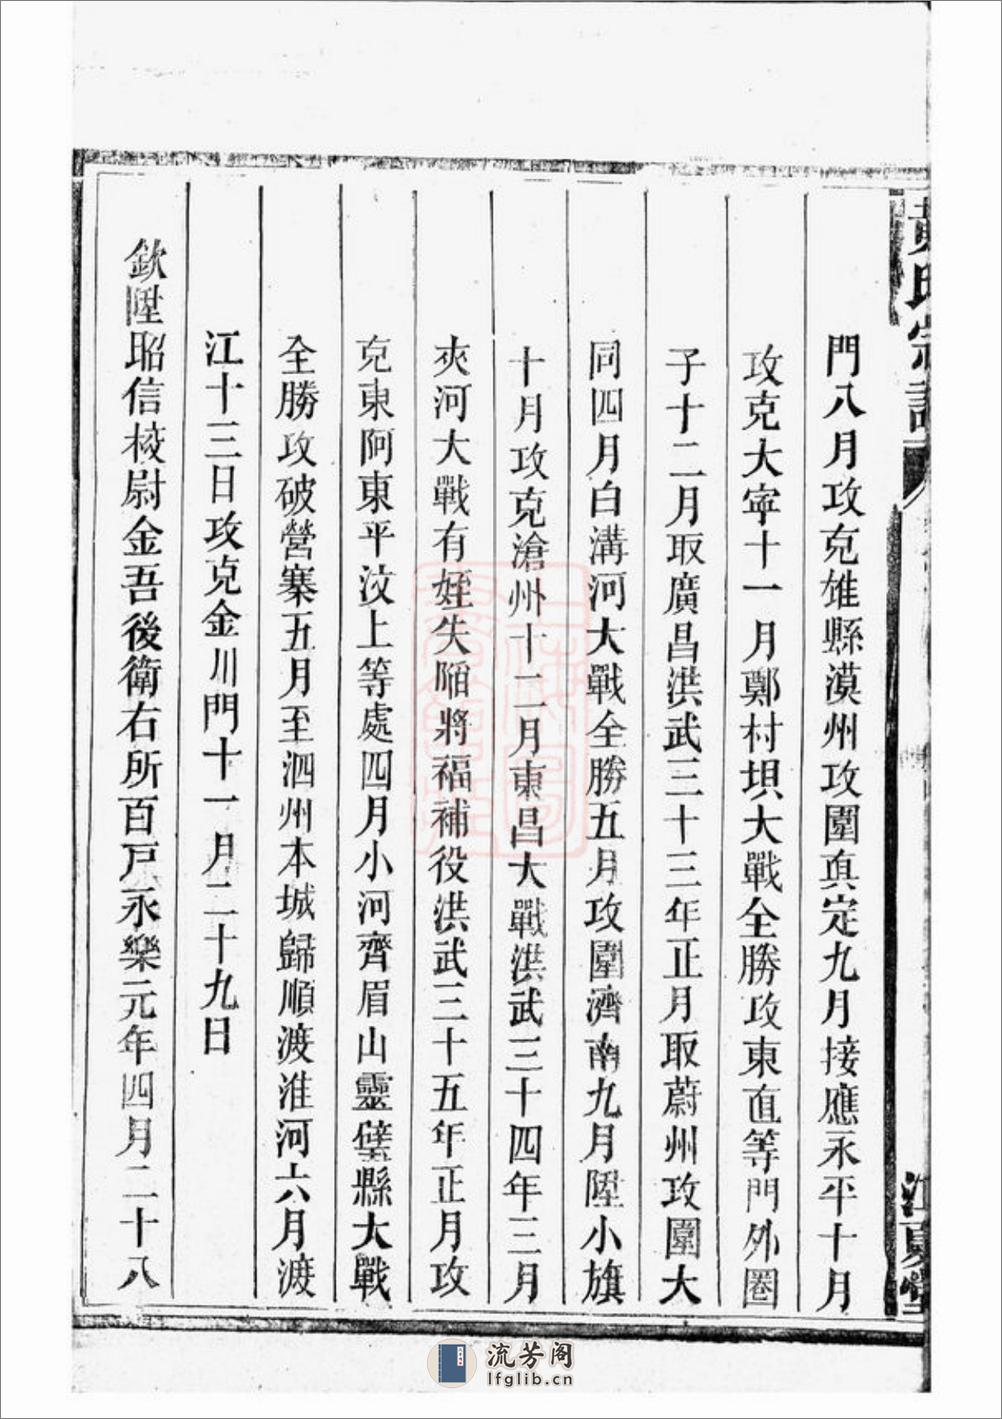 黃氏宗譜
江夏堂
門八月攻克雄縣漠州攻圍真定九月接應永平十月
攻克大寧十一月鄭村垻大戰全勝攻東直等門外圈
子十二月取廣昌洪武三十三年正月取蔚州攻圍大
同四月白溝河大戰全勝五月攻圍濟南九月陞小旗
十月攻克滄州十二月東昌大戰洪武三十四年三月
夾河大戰有姪失陷將福補役洪武三十五年正月攻
克東阿東平汶上等處四月小河齊眉山靈璧縣大戰
全勝攻破營寨五月至泗州本城歸順渡淮河六月渡
江十三日攻克金川門十一月二十九日
欽陞昭信校尉金吾後衛右所百戶永樂元年四月二十八
流芳阁
lfglib.cn